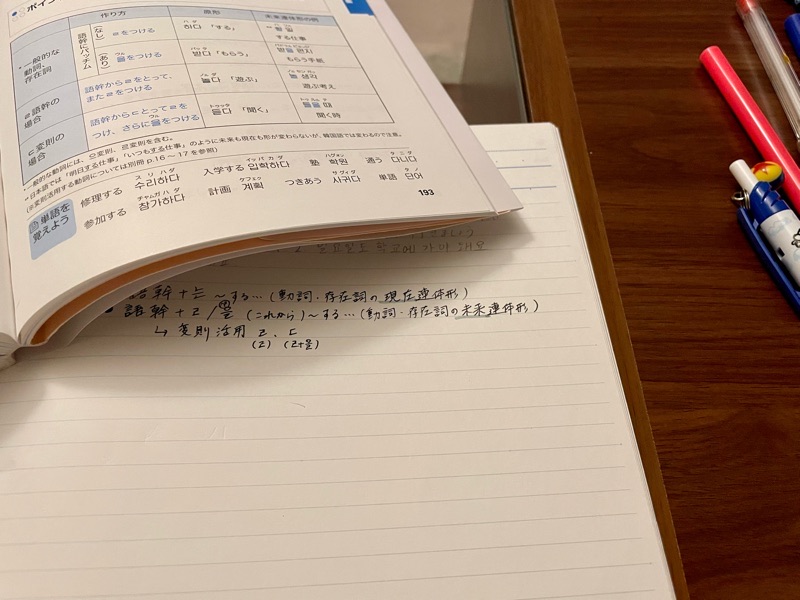 ポイン
作り方
原形
未来連体形の例
・一般的な動詞、存在詞
語幹にパッチム
(なし) ㄹをつける
하다 「する」
할 일
する仕事
(あり) 을をつける
받다 「もらう」
받을 편지
もらう手紙
ㄹ語幹の場合
語幹からㄹをとって、またㄹをつける
놀다 「遊ぶ」
놀 생각
遊ぶ考え
ㄷ変則の場合
語幹からㄷとってㄹをつけ、さらに을をつける
듣다 「聞く」
들을 때
聞く時
一般的な動詞には、으変則、르変則を含む。
日本語では「明日する仕事」「いつもする仕事」のように未来も現在も形が変わらないが、韓国語では変わるので注意。
(※変則活用する動詞については別冊 p.16 〜 17 を参照)
単語を覚えよう
修理する 수리하다 入学する 입학하다 塾 학원 通う 다니다
参加する 참가하다 計画 계획 つきあう 사귀다 単語 단어
193
語幹 + 는 〜する…(動詞・存在詞の現在連体形)
語幹 + ㄹ/을 (これから)〜する…(動詞・存在詞の未来連体形)
↳ 変則活用 ㄹ、ㄷ
(ㄹ) (ㄹ+을)